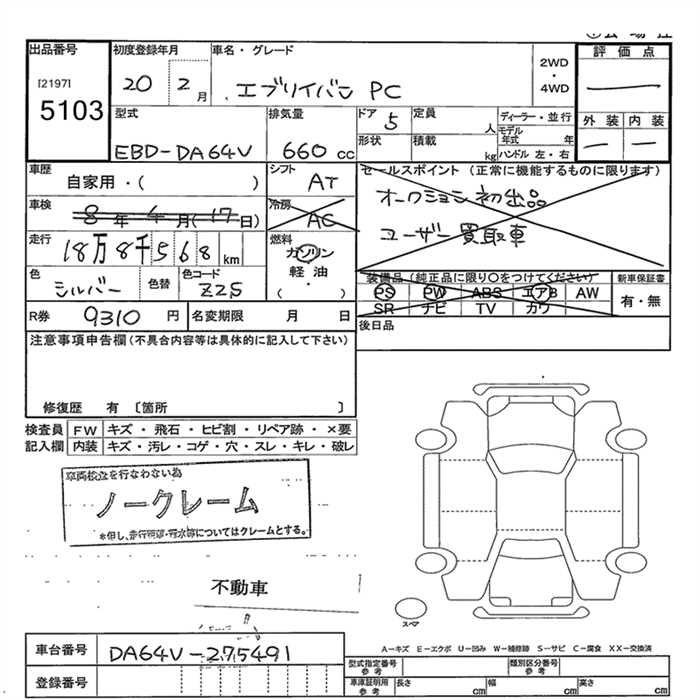 出品番号 初度登録年月 車名・グレード 2WD・4WD 評価点
[2197]
5103 20 2月 エブリイバン PC ―
型式 排気量 ドア 5 定員 人 ディーラー・並行 外装 内装
形状 積載 kg モデル年式 年 ― ―
EBD-DA64V 660cc ハンドル 左・右
車歴 自家用・( ) シフト AT セールスポイント (正常に機能するものに限ります)
車検 8年4月(17日) 冷房 AC オークション初出品
走行 18万8千568km 燃料 ガソリン ユーザー買取車
軽油・( )
色 シルバー 色替 色コード Z2S 装備品(純正品に限り○をつけてください) 新車保証書
PS PW ABS エアB AW 有・無
SR ナビ TV カワ
R券 9310円 名変期限 月 日 後日品
注意事項申告欄(不具合内容等は具体的に記入して下さい)
修復歴 有 〔箇所 〕
検査員記入欄 FW キズ・飛石・ヒビ割・リペア跡・×要
内装 キズ・汚レ・コゲ・穴・スレ・キレ・破レ
車両検査を行なわない為
ノークレーム
*但し、走行問題・冠水等についてはクレームとする。
不動車
スペア
A-キズ E-エクボ U-凹み W-補修跡 S-サビ C-腐食 XX-交換済
車台番号 DA64V-275491
登録番号
型式指定番号 参考 類別区分番号 参考
車庫証明用 参考 長さ cm 幅 cm 高さ cm